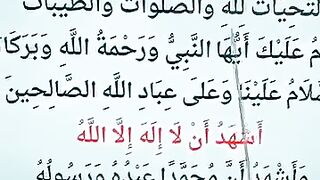 لتحيات لله والصلوات والطيبات
مُ عَلَيْكَ أَيُّهَا النَّبِيُّ وَرَحْمَةُ اللَّهِ وَبَرَكَا
لَامُ عَلَيْنَا وَعَلَى عِبَادِ اللَّهِ الصَّالِحِينَ
أَشْهَدُ أَنْ لَا إِلَهَ إِلَّا اللَّهُ
وَأَشْهَدُ أَنَّ مُحَمَّدًا عَبْدُهُ وَرَسُولُهُ